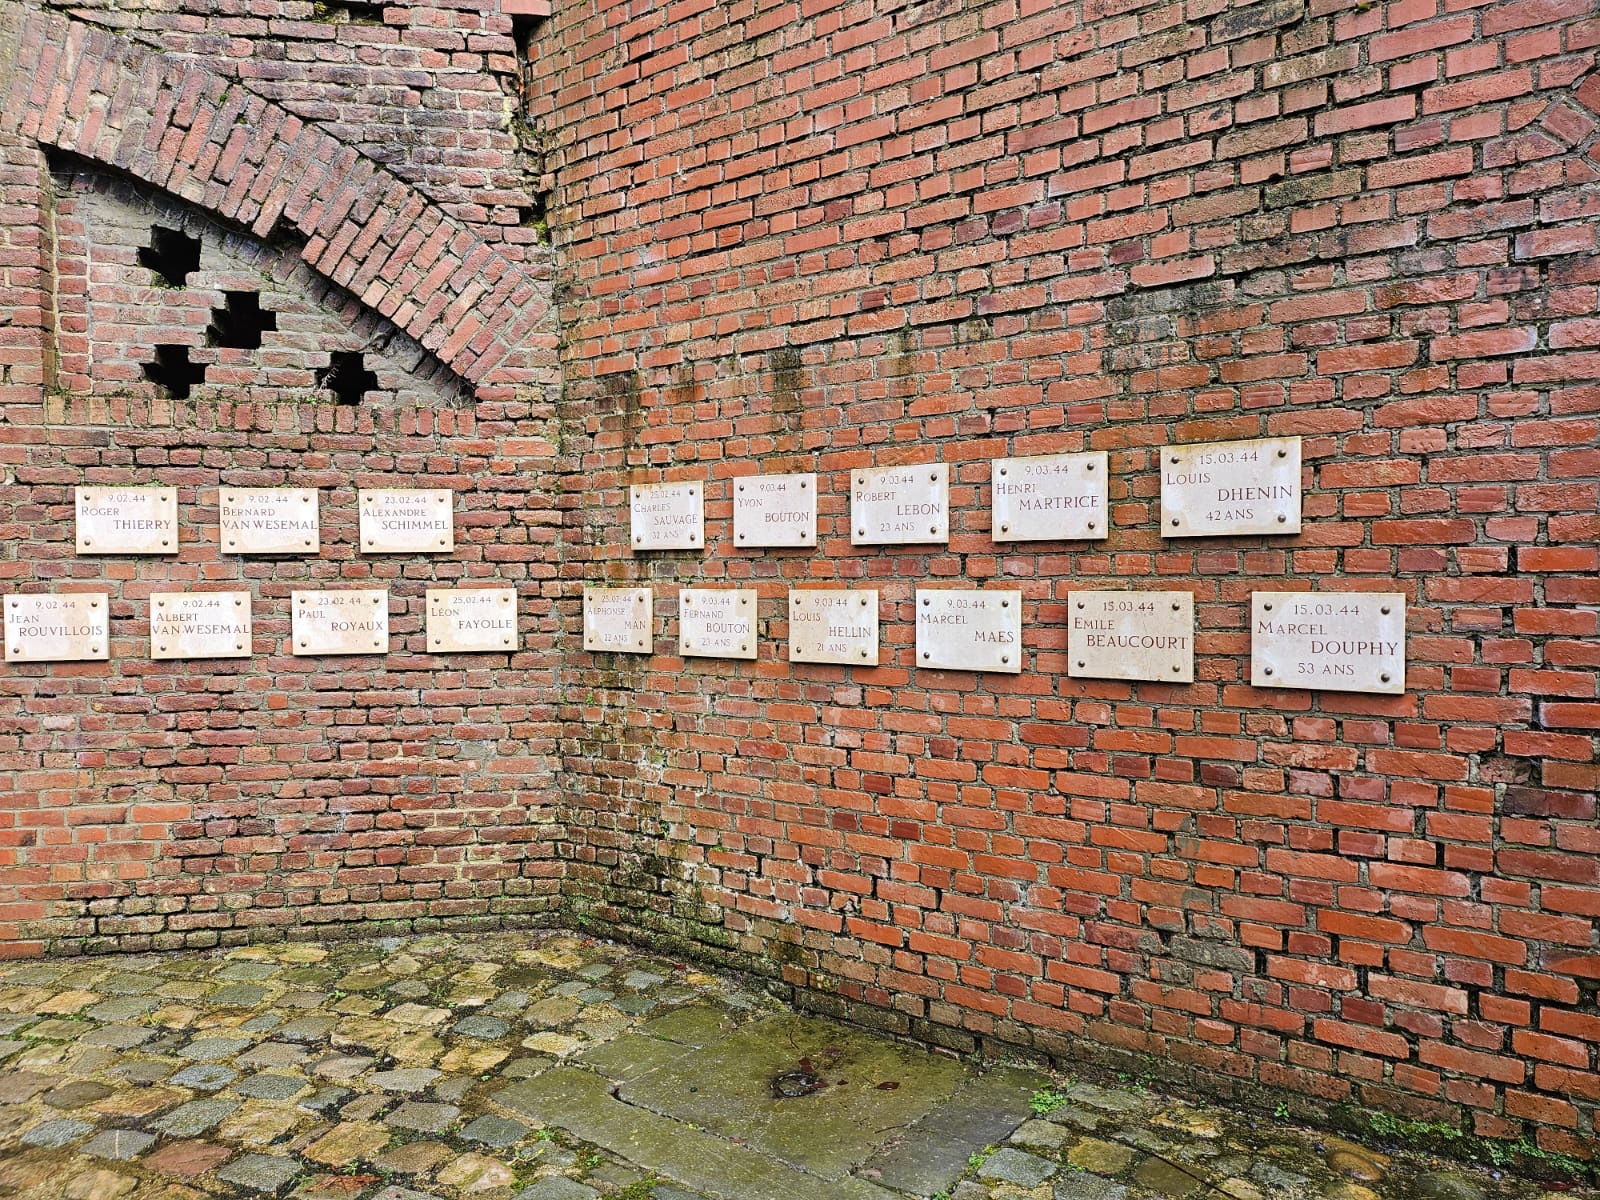 9.02.44
ROGER
THIERRY
9.02.44
BERNARD
VAN WESEMAL
23.02.44
ALEXANDRE
SCHIMMEL
25.02.44
CHARLES
SAUVAGE
32 ANS
9.03.44
YVON
BOUTON
9.03.44
ROBERT
LEBON
23 ANS
9.03.44
HENRI
MARTRICE
15.03.44
LOUIS
DHENIN
42 ANS
9.02.44
JEAN
ROUVILLOIS
9.02.44
ALBERT
VAN WESEMAL
23.02.44
PAUL
ROYAUX
25.02.44
LÉON
FAYOLLE
25.02.44
ALPHONSE
MAN
ANS
9.03.44
FERNAND
BOUTON
23 ANS
9.03.44
LOUIS
HELLIN
21 ANS
9.03.44
MARCEL
MAES
15.03.44
EMILE
BEAUCOURT
15.03.44
MARCEL
DOUPHY
53 ANS